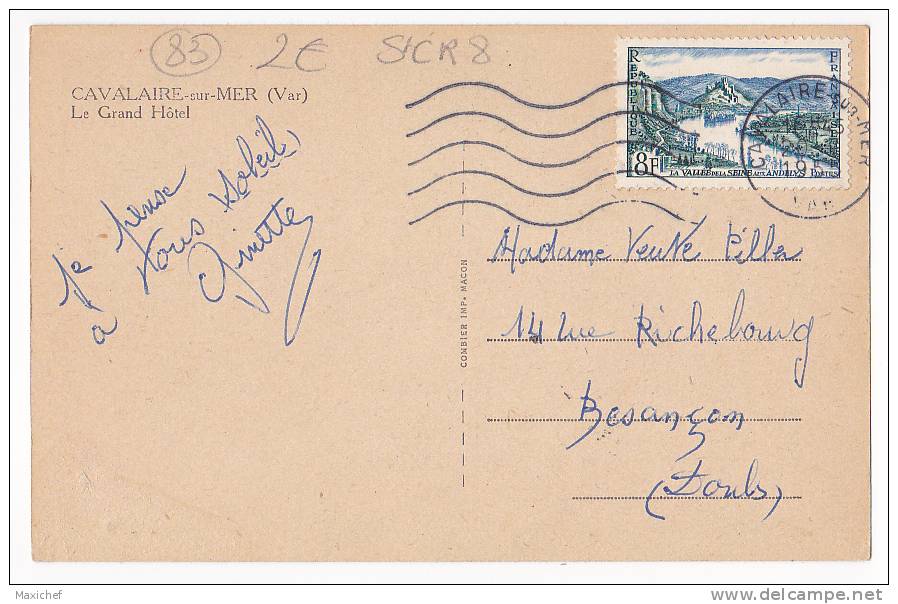 83 2€ StCR8
CAVALAIRE-sur-MER (Var)
Le Grand Hôtel
Je pense
à vous Soleil,
Ginette
COMBIER IMP. MACON
REPUBLIQUE FRANÇAISE
8F LA VALLÉE DE LA SEINE AUX ANDELYS POSTES
CAVALAIRE-sur-MER
VAR
Madame Veuve
14 rue Richebourg
Besançon
(Doubs)
Maxichef
www.delcampe.net